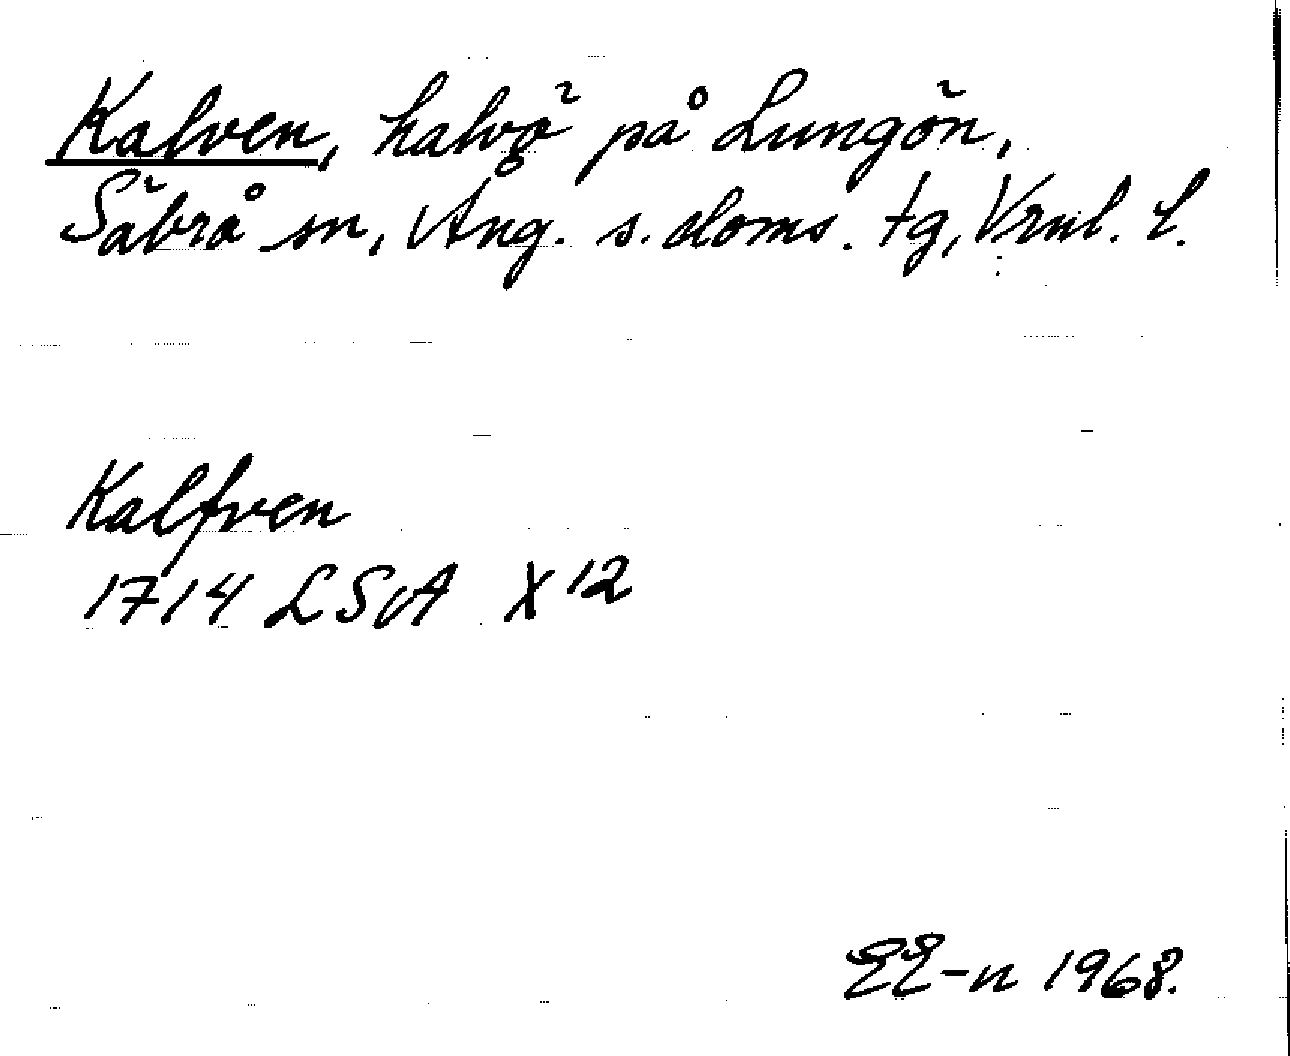 Kalven, halvö på Lungön,
Säbrå sn, Ång. s. doms. tg, Vrnl. l.
Kalfven
1714 LSA X 12
EE-n 1968.